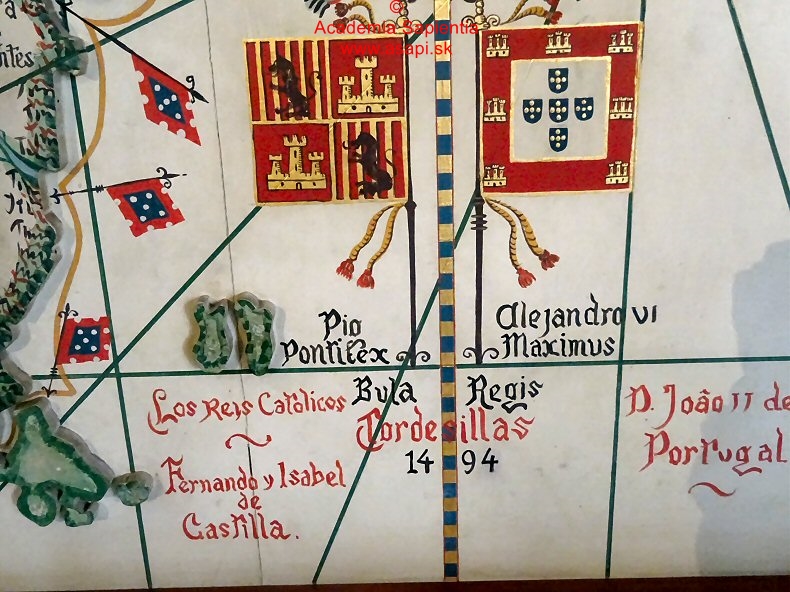 ©
Academia Sapientia
Pio
Pontifex
Alejandro VI
Maximus
Bula Regis
Tordesillas
14 94
Los Reis Catolicos
Fernando y Isabel
de
Castilla.
D. João II de
Portugal